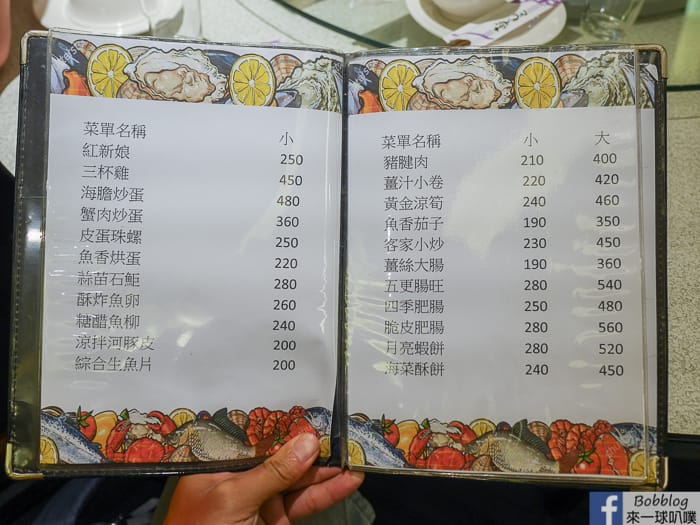 菜單名稱 小
紅新娘 250
三杯雞 450
海膽炒蛋 480
蟹肉炒蛋 360
皮蛋珠螺 250
魚香烘蛋 220
蒜苗石鉅 280
酥炸魚卵 260
糖醋魚柳 240
涼拌河豚皮 200
綜合生魚片 200
菜單名稱 小 大
豬腱肉 210 400
薑汁小卷 220 420
黃金涼筍 240 460
魚香茄子 190 350
客家小炒 230 450
薑絲大腸 190 360
五更腸旺 280 540
四季肥腸 250 480
脆皮肥腸 280 560
月亮蝦餅 280 520
海菜酥餅 240 450
Bobblog
來一球叭噗